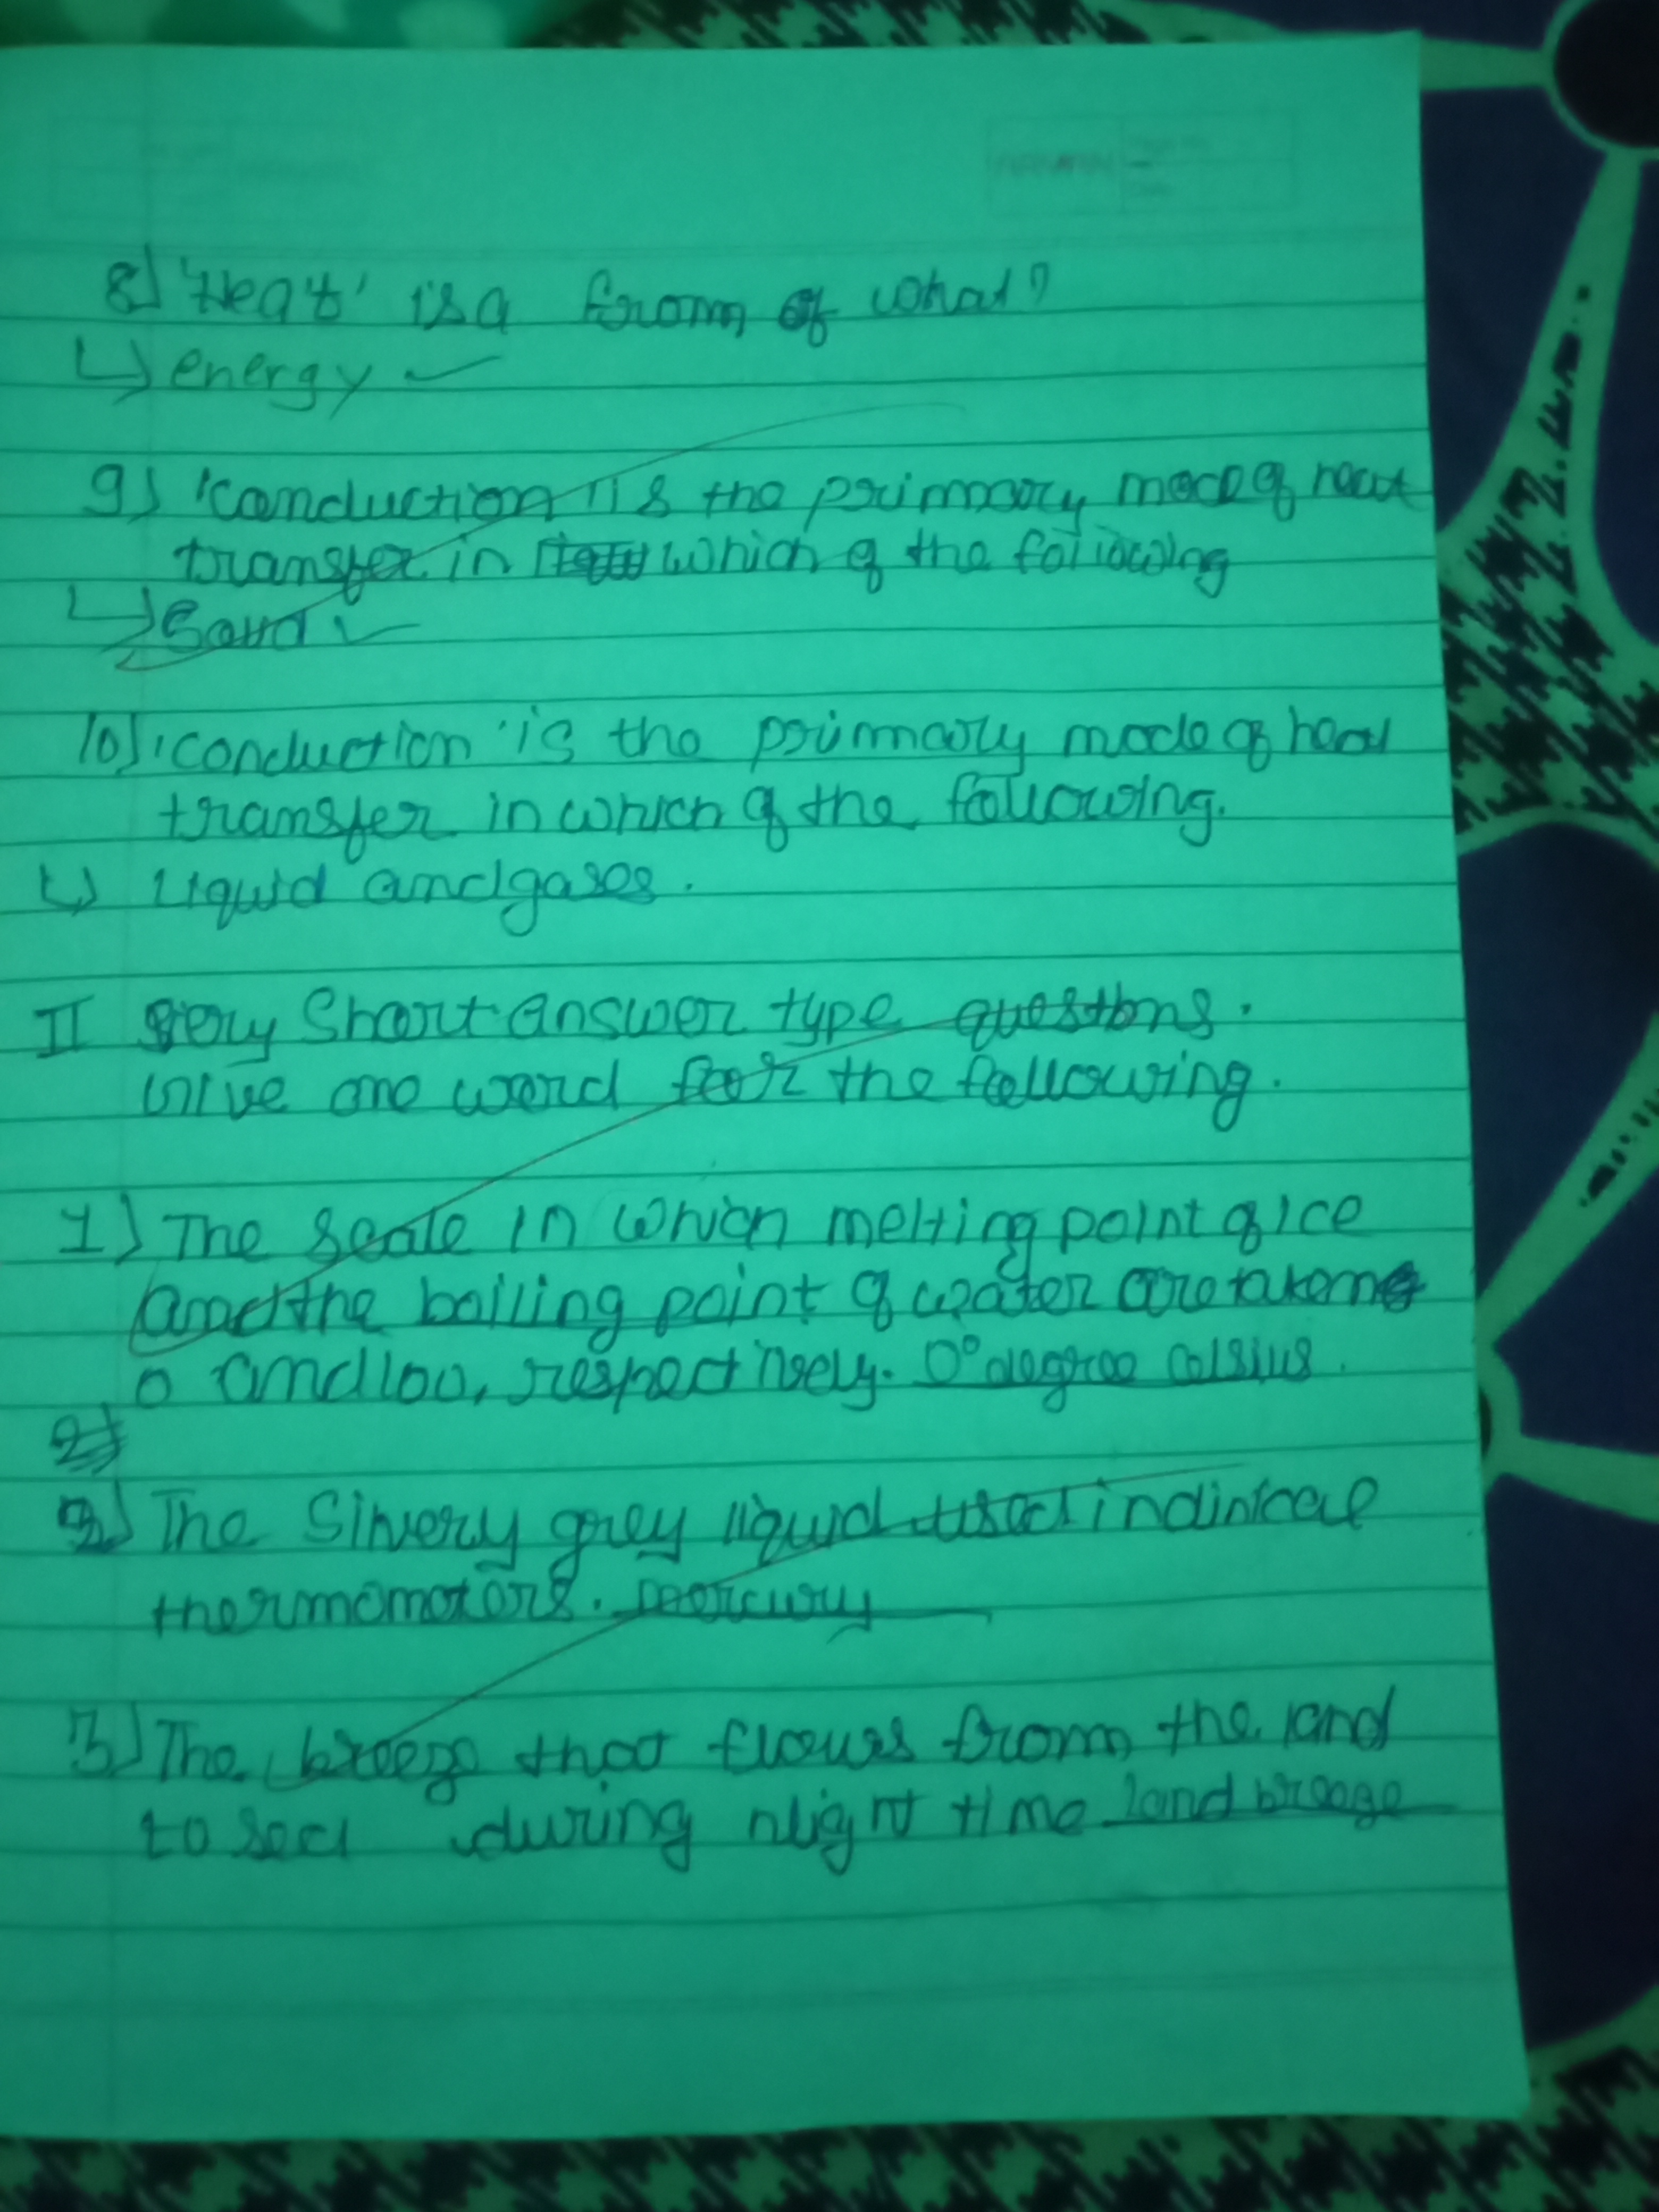 8) 'Heat' is a from of what?
↳ energy
9) 'conduction' is the primary mode of heat
transfer in which of the following
10) 'conduction' is the primary mode of heat
transfer in which of the following.
↳ Liquid and gases.
II very Short answer type questions.
Give one word for the following.
1) The Scale in which melting point of ice
and the boiling point of water are taken
0 and 100, respectively. 0° degree celsius.
2)
2) The Silvery grey liquid used in
thermometers. mercury
3) The breeze that flows from the land
to sea during night time land breeze